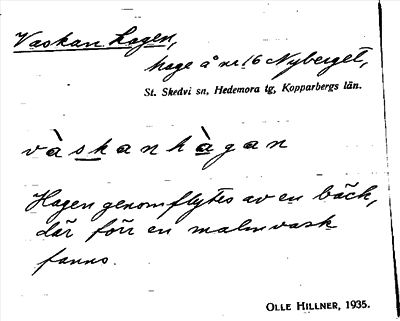 Vaskan hagen,
hage å nr 16 Nyberget,
St. Skedvi sn, Hedemora tg, Kopparbergs län.
vàskanhàgan
Hagen genomflytes av en bäck,
där förr en malmvask
fanns.
OLLE HILLNER, 1935.